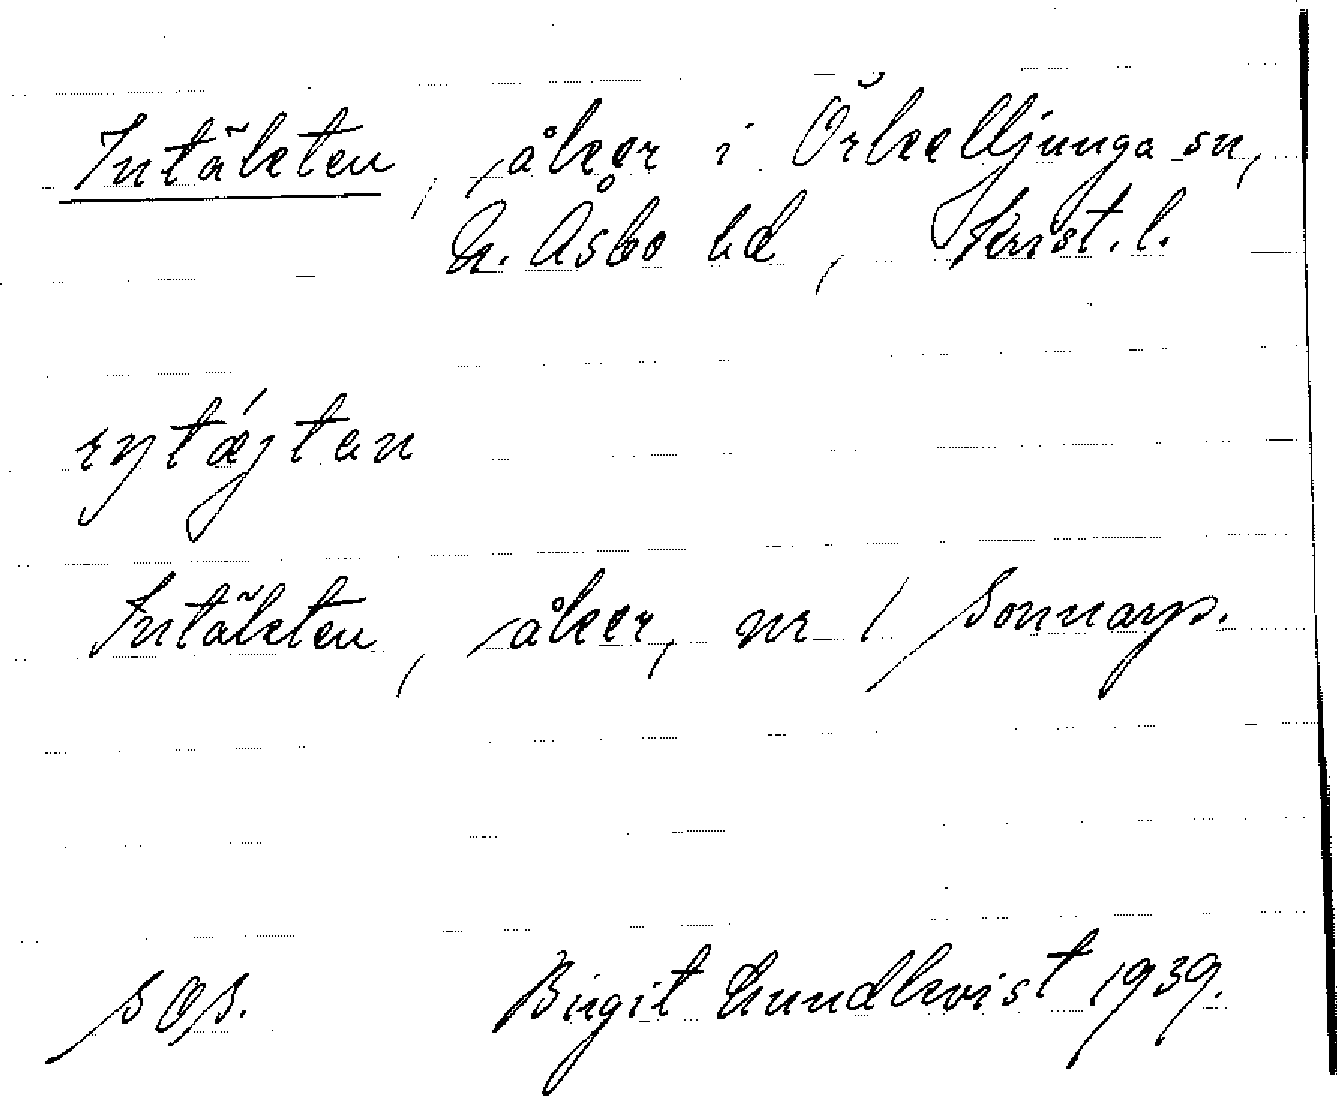 Intäkten, åker i Örkelljunga sn,
N. Åsbo hd, Krist. l.
Intäkten, åker, nr 1 Sonnarp.
SOS. Birgit Lundkvist 1939.